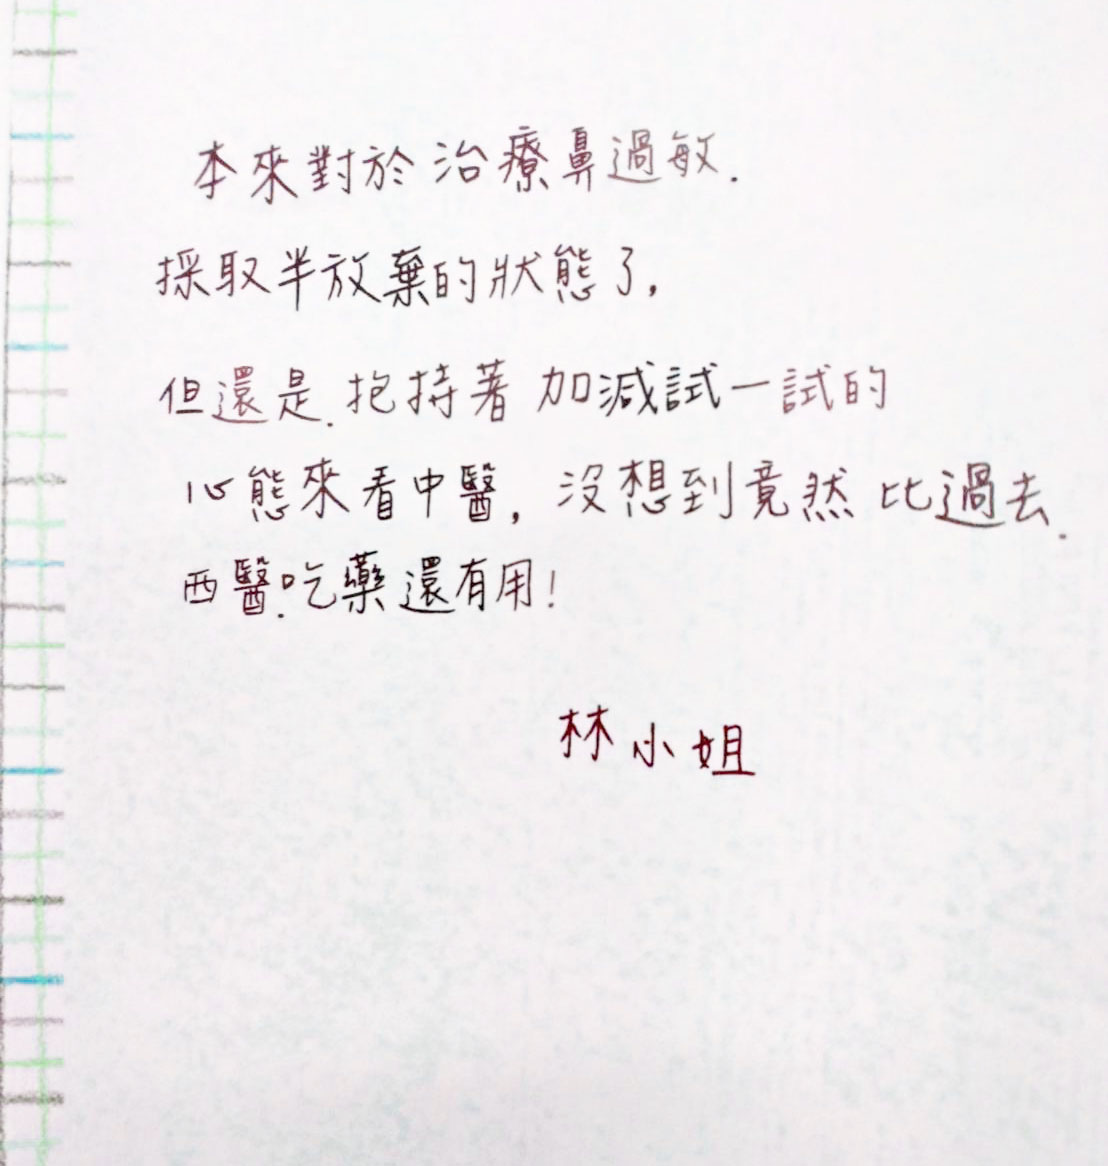 本來對於治療鼻過敏.
採取半放棄的狀態了,
但還是.抱持著加減試一試的
心態來看中醫,沒想到竟然比過去.
西醫.吃藥還有用!
林小姐